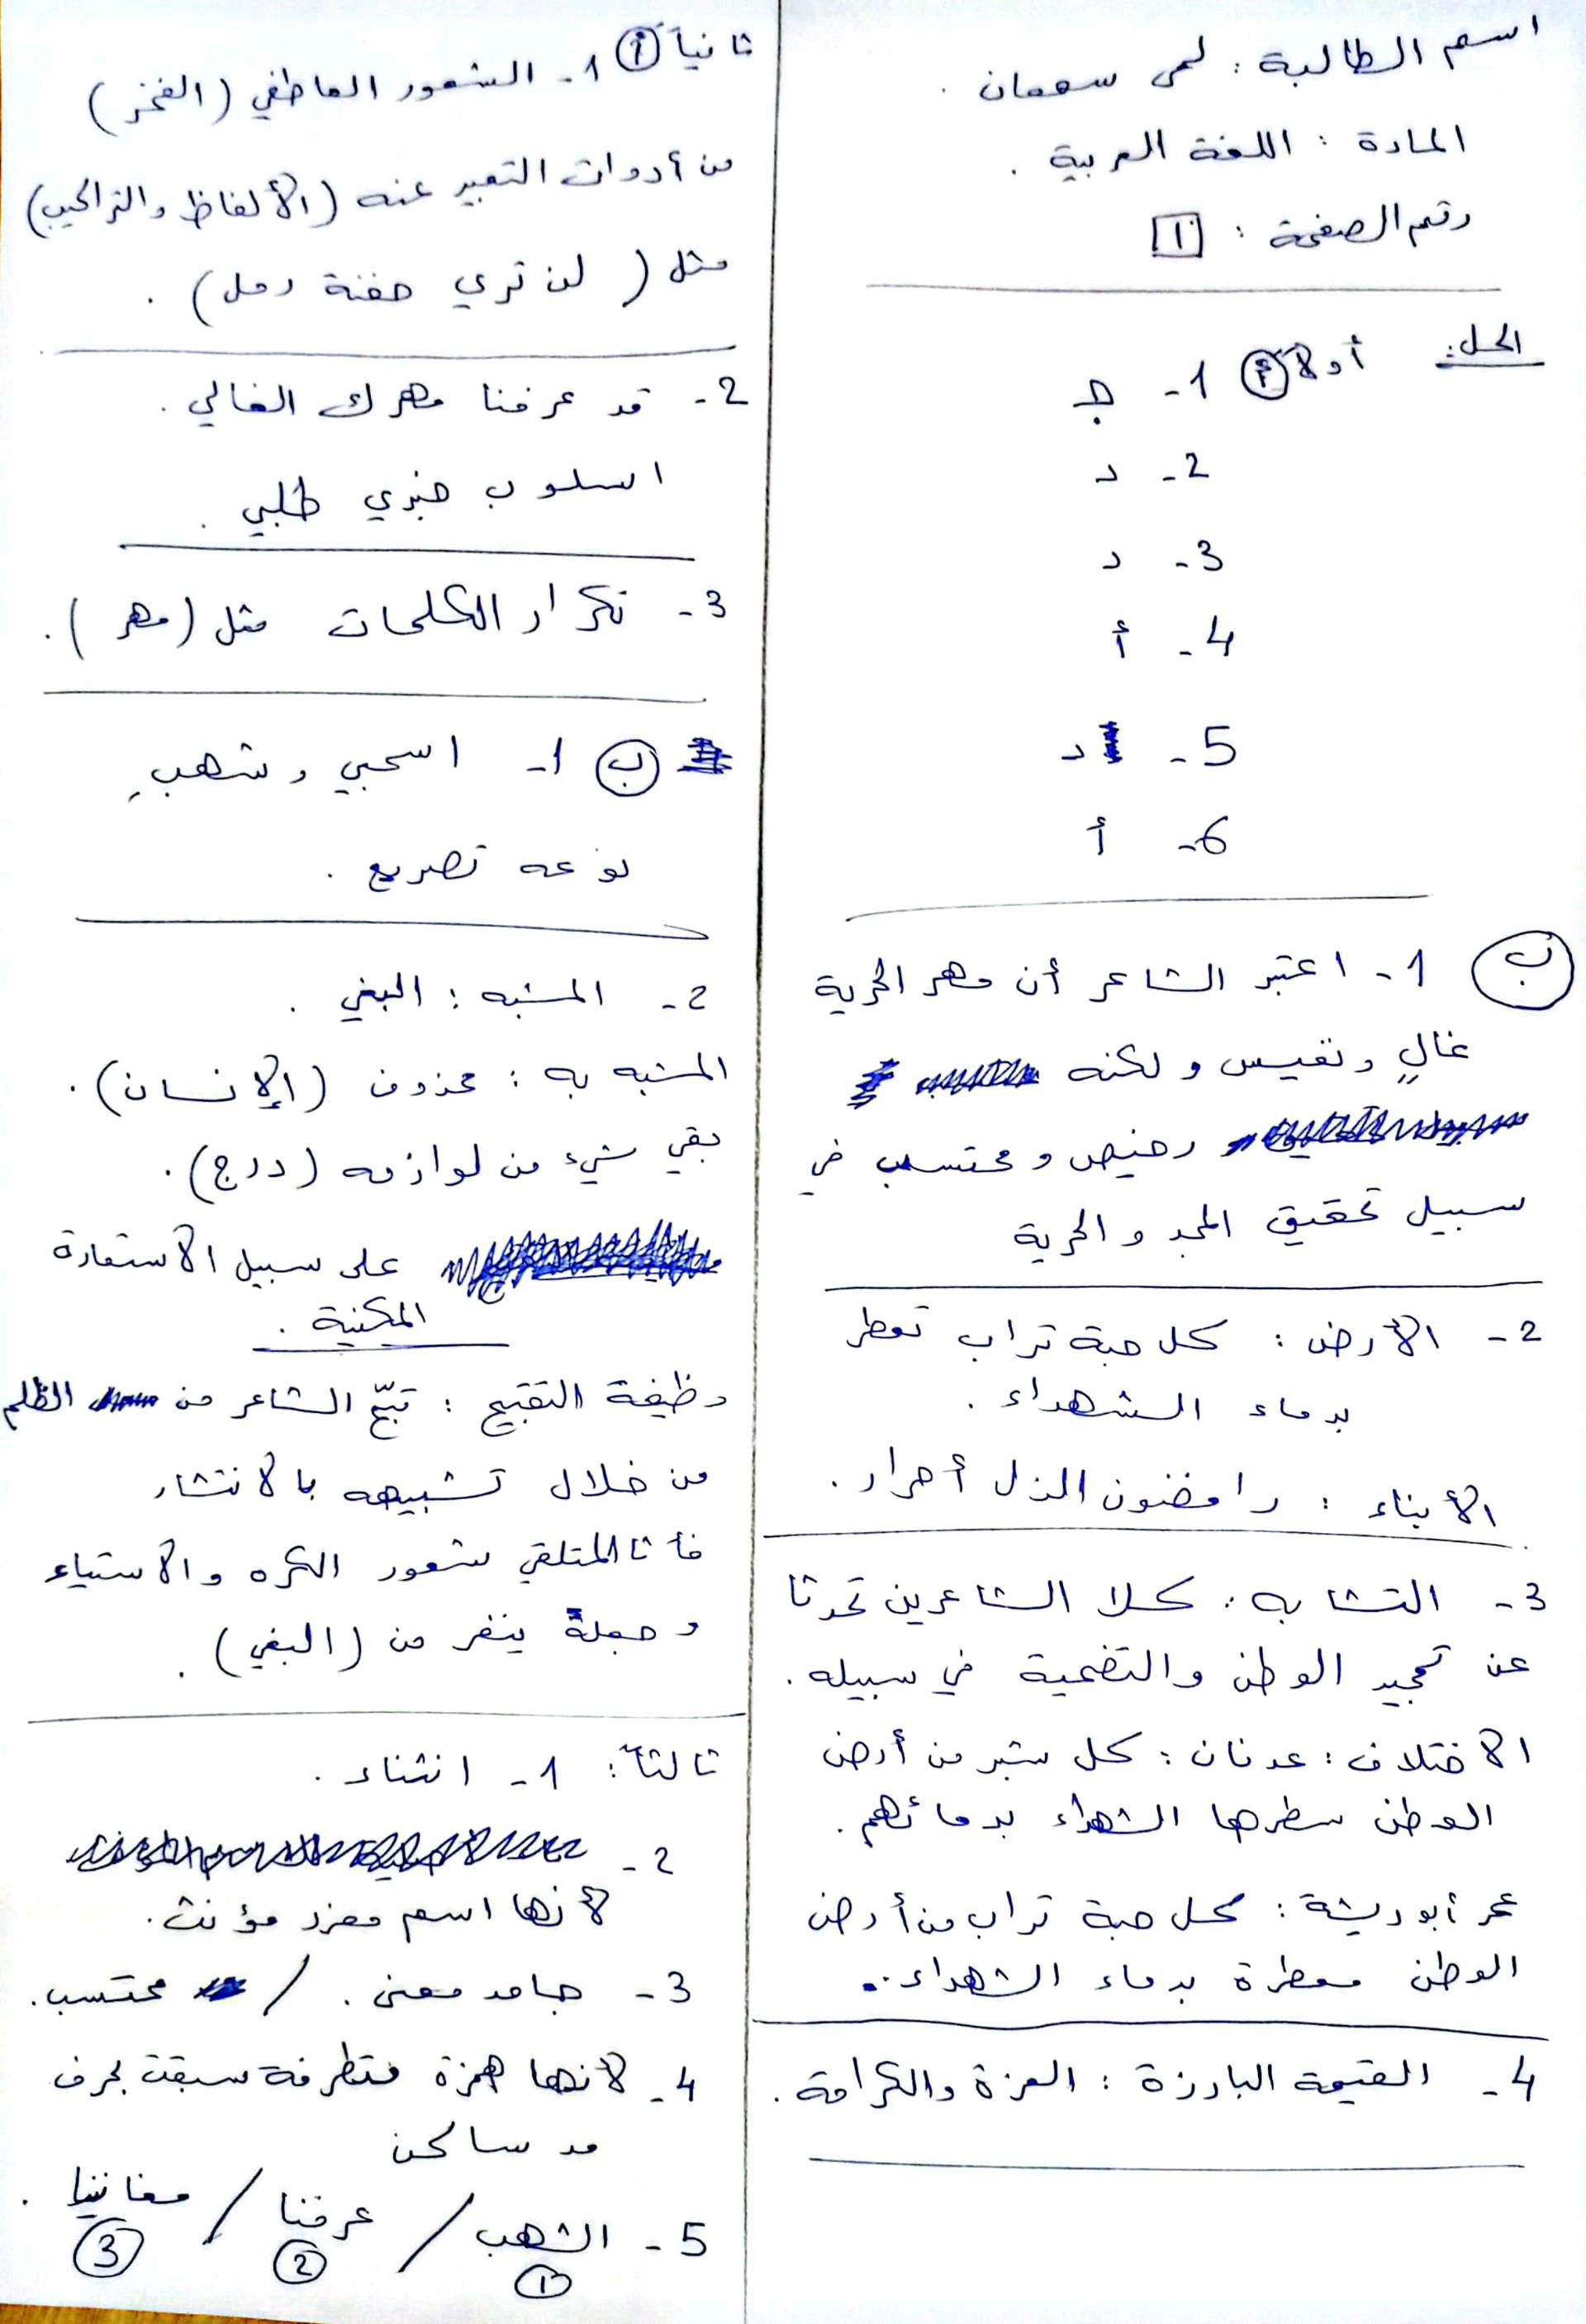 اسم الطالبة : لمى سمعان .
المادة : اللغة العربية .
رقم الصفحة : 1
الحل: أولاً أ 1- ج
2- د
3- د
4- أ
5- د
6- أ
ب 1- اعتبر الشاعر أن مهر الحرية
غالٍ ونفيس ولكنه
رخيص ومحتسب في
سبيل تحقيق المجد والحرية
2- الأرض : كل حبة تراب تعطر
بدماء الشهداء .
الأبناء : رافضون الذل أحرار .
3- التشابه : كلا الشاعرين تحدثا
عن تمجيد الوطن والتضحية في سبيله .
الاختلاف : عدنان : كل شبر من أرض
الوطن سطرها الشهداء بدمائهم .
عمر أبو ريشة : كل حبة تراب من أرض
الوطن معطرة بدماء الشهداء .
4- القيمة البارزة : العزة والكرامة .
ثانياً أ 1- الشعور العاطفي (الفخر)
من أدوات التعبير عنه (الألفاظ والتراكيب)
مثل ( لن تري حفنة رمل ) .
2- قد عرفنا مهرك الغالي .
اسلوب خبري طلبي .
3- تكرار الكلمات مثل (مهر ) .
ب 1- اسحبي وشهبِ
نوعه تصريع .
2- المشبه : البغي .
المشبه به : محذوف (الإنسان) .
بقي شيء من لوازمه (درج) .
على سبيل الاستعارة
المكنية .
وظيفة التقبيح : قبّح الشاعر من الظلم
من خلال تشبيهه بالانتشار
المتلقي شعور الكره والاستياء
وجعلة ينفر من (البغي) .
ثالثاً : 1- انثناء .
2-
لأنها اسم مفرد مؤنث .
3- جامد معنى . / محتسب .
4- لأنها همزة متطرفة سبقت بحرف
مد ساكن
5- الشهب / عرفنا / مغانينا .
1 2 3